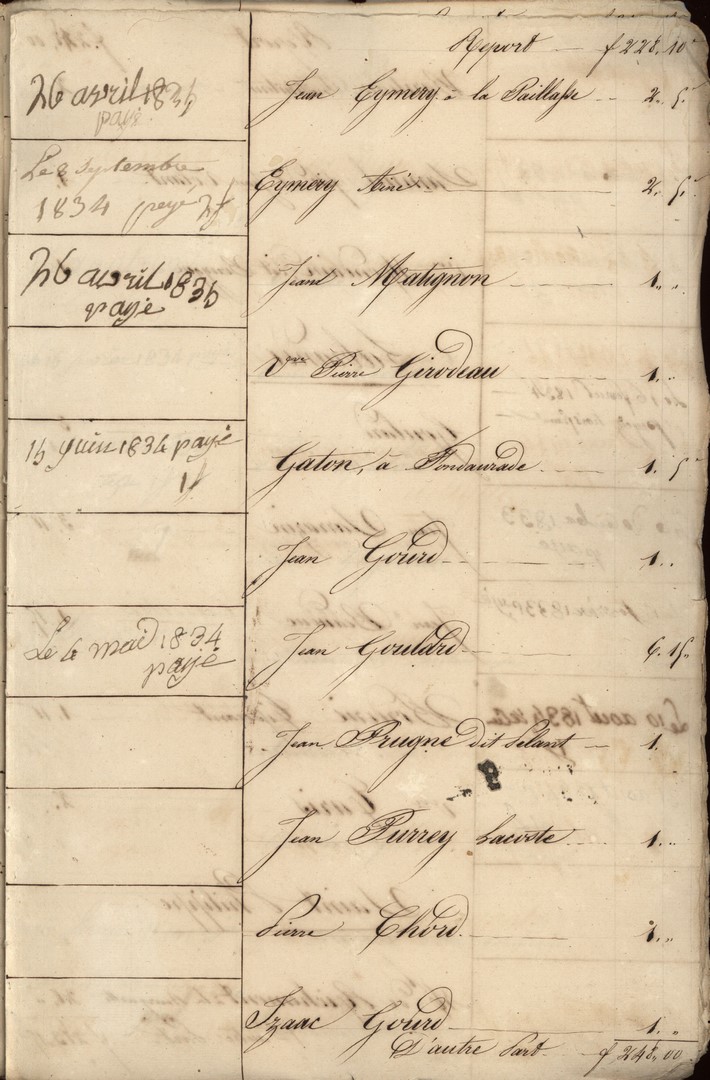 Report f 228. 10
26 avril 1834 Jean Eymery à la Paillasse 2. 5.
payé
Le 8 septembre Eymery Ainé 2. 5.
1834 paye 2f
26 avril 1835 Jean Matignon 1. "
payé
Vve Pierre Girodeau 1. "
15 juin 1834 payé Gaton, à Fondaurade 1. 5
1f
Jean Gourd 1. "
Le 4 mai 1834 Jean Goulard 6. 15
payé
Jean Prugne dit 1.
Jean Purrey Lacoste 1. "
Pierre Chord 1. "
Izaac Gourd 1. "
D'autre Part f 248. 00